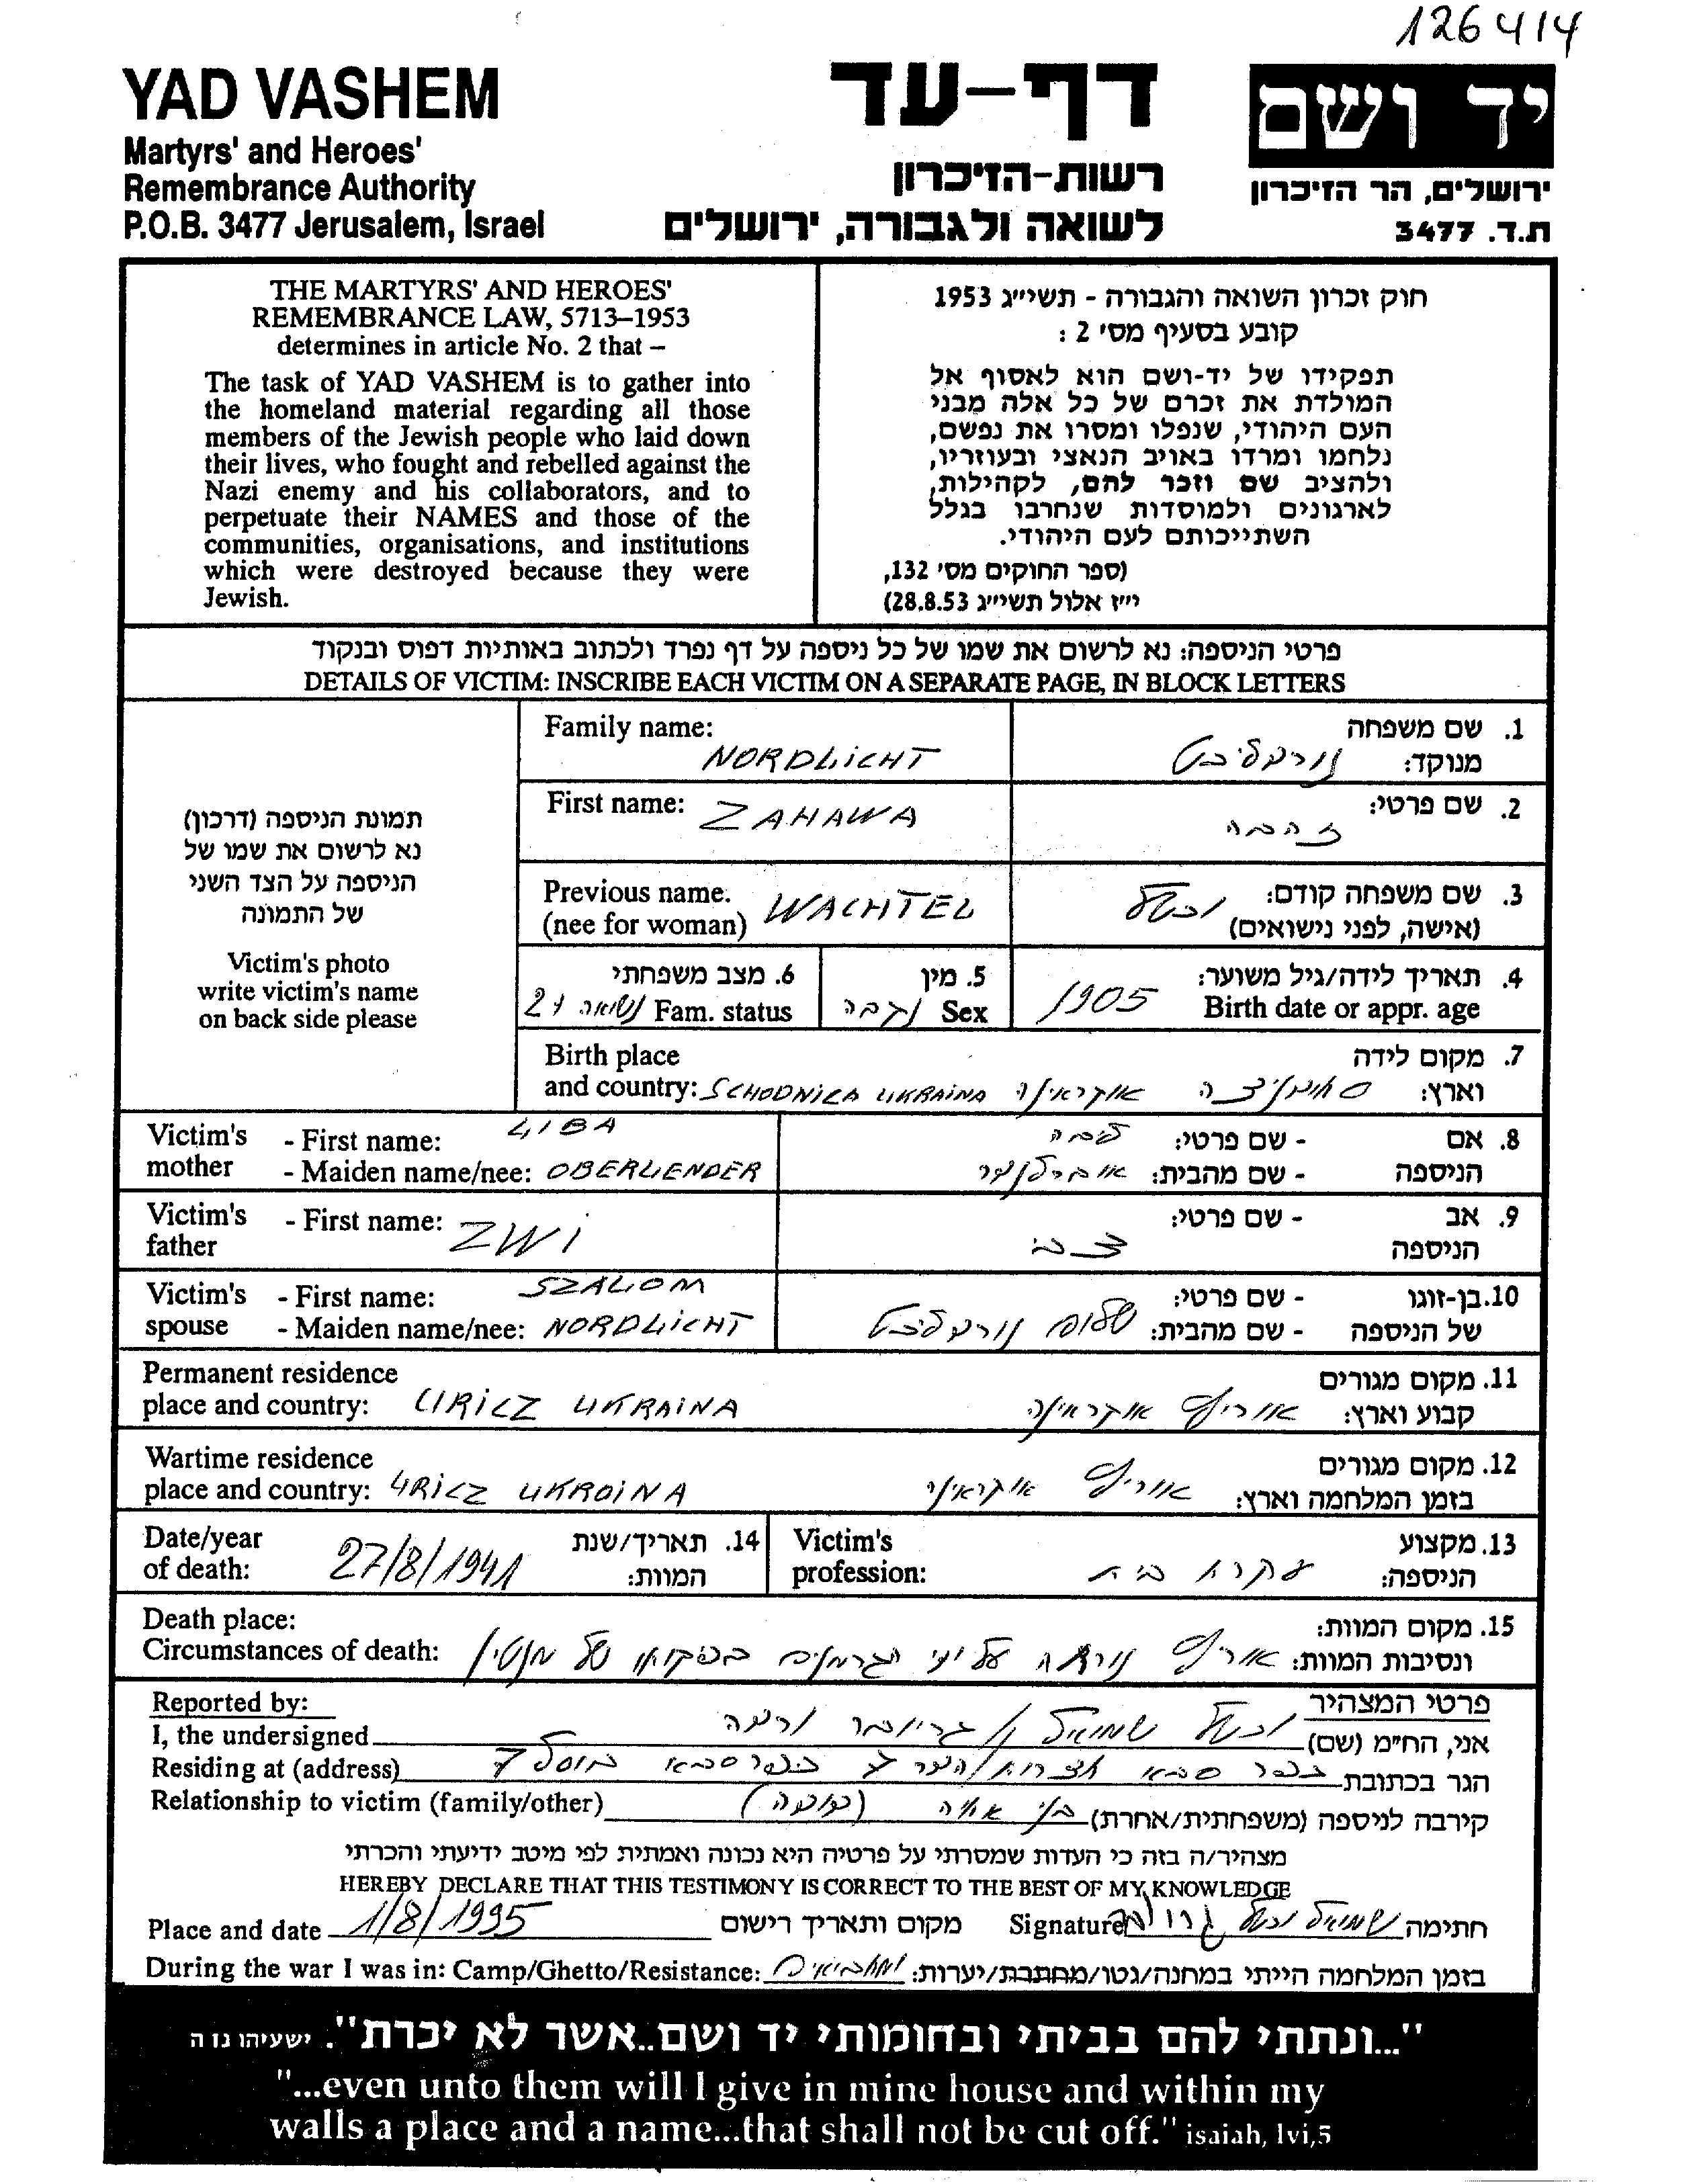 126414
YAD VASHEM
Martyrs' and Heroes'
Remembrance Authority
P.O.B. 3477 Jerusalem, Israel
דף-עד
רשות-הזיכרון
לשואה ולגבורה, ירושלים
יד ושם
ירושלים, הר הזיכרון
ת.ד. 3477
THE MARTYRS' AND HEROES'
REMEMBRANCE LAW, 5713–1953
determines in article No. 2 that –
The task of YAD VASHEM is to gather into
the homeland material regarding all those
members of the Jewish people who laid down
their lives, who fought and rebelled against the
Nazi enemy and his collaborators, and to
perpetuate their NAMES and those of the
communities, organisations, and institutions
which were destroyed because they were
Jewish.
חוק זכרון השואה והגבורה - תשי״ג 1953
קובע בסעיף מס׳ 2 :
תפקידו של יד-ושם הוא לאסוף אל
המולדת את זכרם של כל אלה מבני
העם היהודי, שנפלו ומסרו את נפשם,
נלחמו ומרדו באויב הנאצי ובעוזריו,
ולהציב שם וזכר להם, לקהילות,
לארגונים ולמוסדות שנחרבו בגלל
השתייכותם לעם היהודי.
(ספר החוקים מס׳ 132,
י״ז אלול תשי״ג 28.8.53)
פרטי הניספה: נא לרשום את שמו של כל ניספה על דף נפרד ולכתוב באותיות דפוס ובנקוד
DETAILS OF VICTIM: INSCRIBE EACH VICTIM ON A SEPARATE PAGE, IN BLOCK LETTERS
תמונת הניספה (דרכון)
נא לרשום את שמו של
הניספה על הצד השני
של התמונה
Victim's photo
write victim's name
on back side please
Family name: NORDLICHT
1. שם משפחה
מנוקד: נורדליכט
First name: ZAHAWA
2. שם פרטי: זהבה
Previous name. WACHTEL
(nee for woman)
3. שם משפחה קודם: וכטל
(אישה, לפני נישואים)
4. תאריך לידה/גיל משוער:
Birth date or appr. age 1905
5. מין
Sex נקבה
6. מצב משפחתי
Fam. status נשואה +2
Birth place
and country: SCHODNICA UKRAINA
7. מקום לידה
וארץ: סחודניצה אוקראינה
Victim's mother - First name: LIBA
- Maiden name/nee: OBERLENDER
8. אם הניספה - שם פרטי: ליבה
- שם מהבית: אוברלנדר
Victim's father - First name: ZWI
9. אב הניספה - שם פרטי: צבי
Victim's spouse - First name: SZALOM
- Maiden name/nee: NORDLICHT
10. בן-זוגו של הניספה - שם פרטי:
- שם מהבית: שלום נורדליכט
Permanent residence
place and country: URICZ UKRAINA
11. מקום מגורים
קבוע וארץ: אוריץ אוקראינה
Wartime residence
place and country: URICZ UKROINA
12. מקום מגורים
בזמן המלחמה וארץ: אוריץ אוקראינה
Date/year
of death: 27/8/1941
14. תאריך/שנת
המוות:
Victim's
profession:
13. מקצוע
הניספה: עקרת בית
Death place:
Circumstances of death:
15. מקום המוות:
ונסיבות המוות: אוריץ נורתה על ידי הגרמנים
Reported by:
פרטי המצהיר
I, the undersigned
אני, החי״מ (שם) וכטל שמואל
Residing at (address)
הגר בכתובת כפר סבא
Relationship to victim (family/other)
קירבה לניספה (משפחתית/אחרת) בן אחיה (דודה)
מצהיר/ה בזה כי העדות שמסרתי על פרטיה היא נכונה ואמתית לפי מיטב ידיעתי והכרתי
HEREBY DECLARE THAT THIS TESTIMONY IS CORRECT TO THE BEST OF MY KNOWLEDGE
Place and date 1/8/1995 מקום ותאריך רישום
Signature שמואל וכטל חתימה
During the war I was in: Camp/Ghetto/Resistance:
בזמן המלחמה הייתי במחנה/גטו/מחתרת/יערות:
"...ונתתי להם בביתי ובחומותי יד ושם..אשר לא יכרת". ישעיהו נו ה
"...even unto them will I give in mine house and within my
walls a place and a name...that shall not be cut off." isaiah, lvi,5